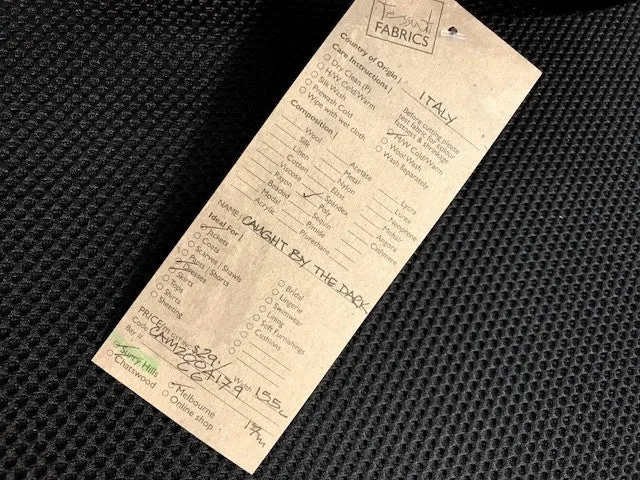 Tessuti
FABRICS
Country of Origin | ITALY
Care Instructions |
Dry Clean (P)
H/W Cold/Warm
Silk Wash
Prewash Cold
Wipe with wet cloth
Before cutting please
test fabric for colour
fastness & shrinkage
H/W Cold/Warm
Wool Wash
Wash Separately
Composition |
Wool
Silk
Linen
Cotton
Viscose
Rayon
Beaded
Modal
Acrylic
Acetate
Metal
Nylon
Elast
Spandex
Poly
Sequin
Bemide
Polyurethane
Lycra
Lurex
Neoprene
Mohair
Angora
Cashmere
NAME: CAUGHT BY THE DARK
Ideal For |
Jackets
Coats
Scarves / Shawls
Pants / Shorts
Dresses
Skirts
Tops
Shirts
Sheeting
Bridal
Lingerie
Swimwear
Lining
Soft Furnishings
Cushions
PRICE $29/ Width 155
Code CAM2007179
Bay # C6
Surry Hills
Chatswood
Melbourne 17m
Online shop